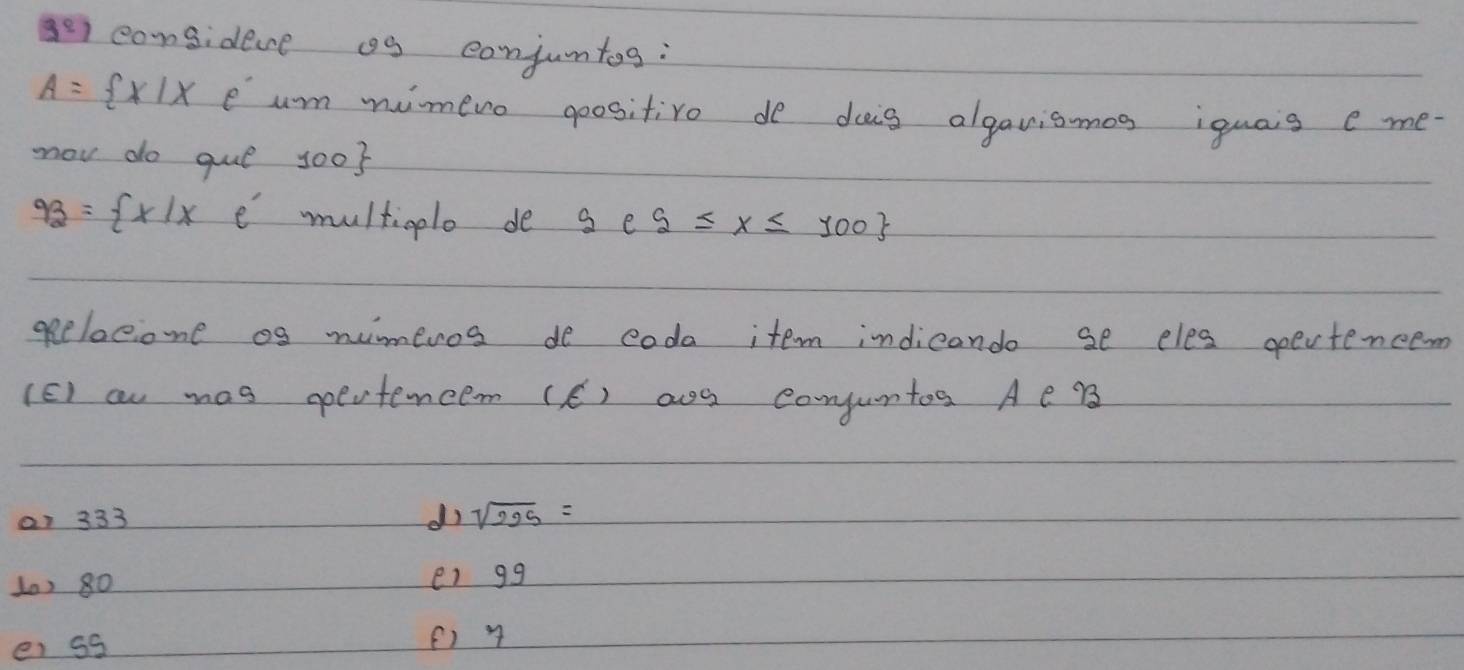 3º) Considere os conjuntos:
A = {x/x é um número positivo de dois algarismos iguais e me-
nor do que 100}
B = {x/x é multiplo de 5 e 5 ≤ x ≤ 100}
Relacione os números de cada item indicando se eles pertencem
(∈) ou nas pertencem (∉) aos conjuntos A e B
a) 333
d) √225 =
b) 80
e) 99
c) 55
f) 7